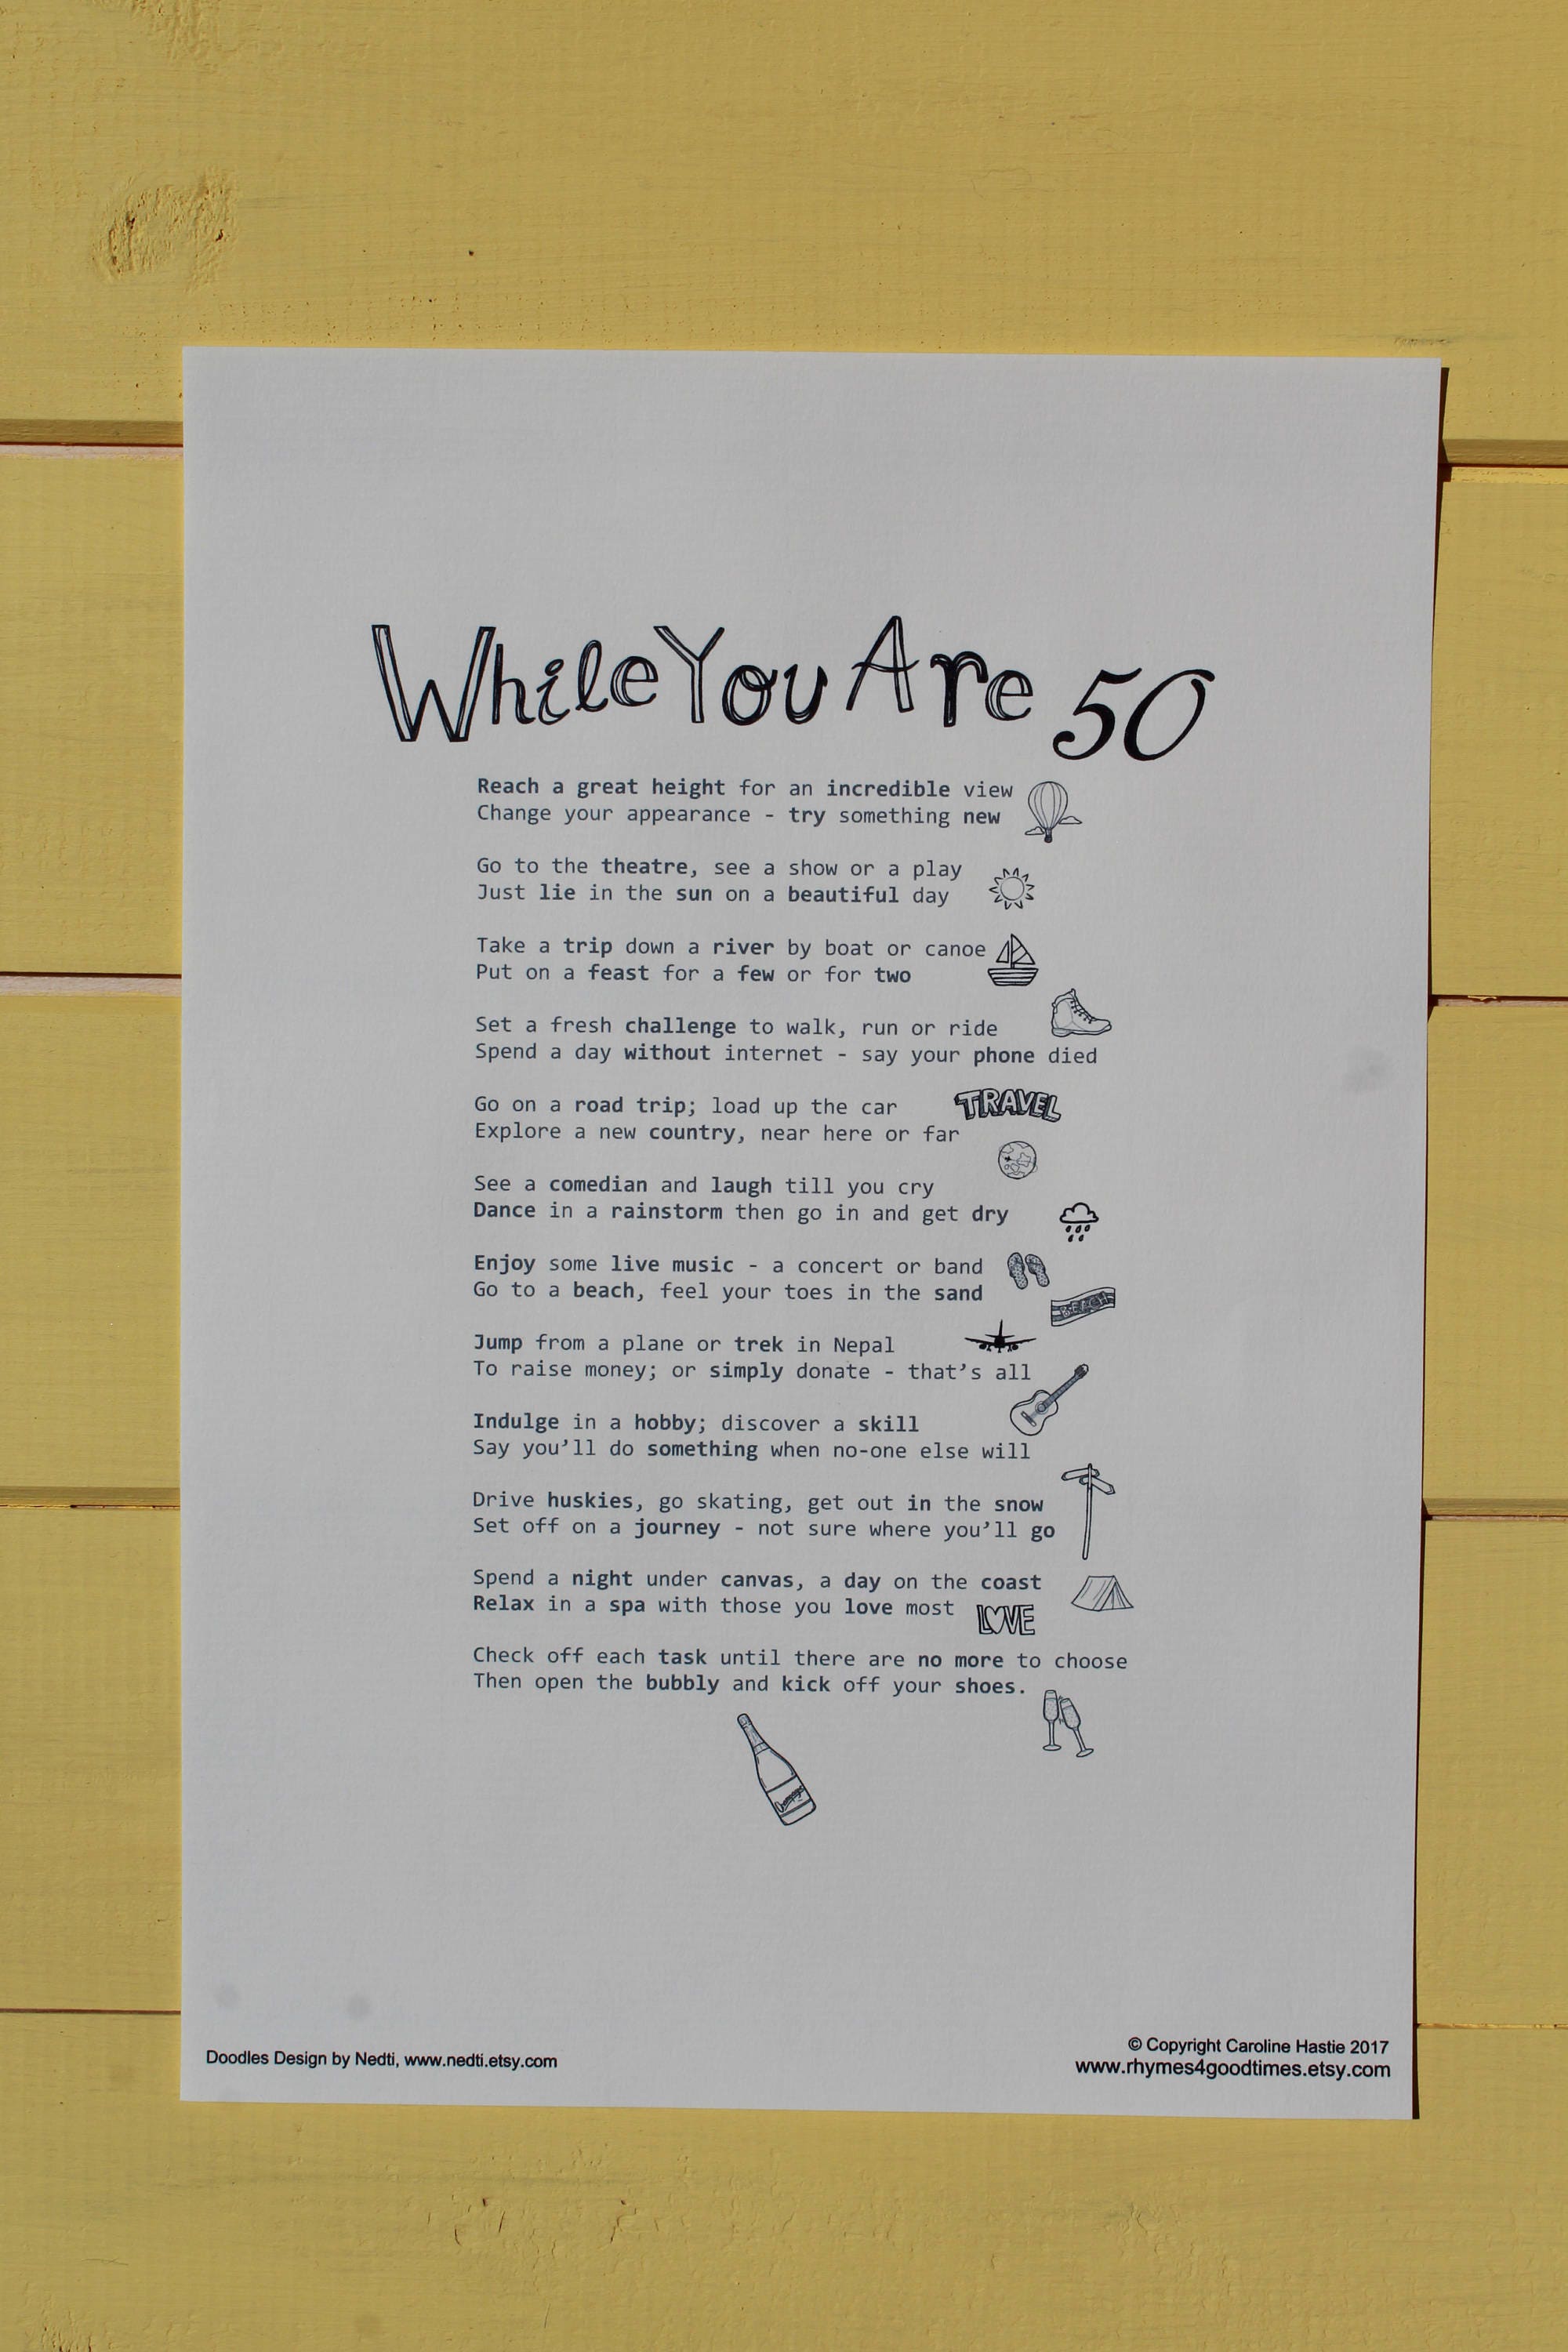 While You Are 50
Reach a great height for an incredible view
Change your appearance - try something new
Go to the theatre, see a show or a play
Just lie in the sun on a beautiful day
Take a trip down a river by boat or canoe
Put on a feast for a few or for two
Set a fresh challenge to walk, run or ride
Spend a day without internet - say your phone died
Go on a road trip; load up the car
TRAVEL
Explore a new country, near here or far
See a comedian and laugh till you cry
Dance in a rainstorm then go in and get dry
Enjoy some live music - a concert or band
Go to a beach, feel your toes in the sand
BEACH
Jump from a plane or trek in Nepal
To raise money; or simply donate - that's all
Indulge in a hobby; discover a skill
Say you'll do something when no-one else will
Drive huskies, go skating, get out in the snow
Set off on a journey - not sure where you'll go
Spend a night under canvas, a day on the coast
Relax in a spa with those you love most
LOVE
Check off each task until there are no more to choose
Then open the bubbly and kick off your shoes.
Doodles Design by Nedti, www.nedti.etsy.com
© Copyright Caroline Hastie 2017
www.rhymes4goodtimes.etsy.com